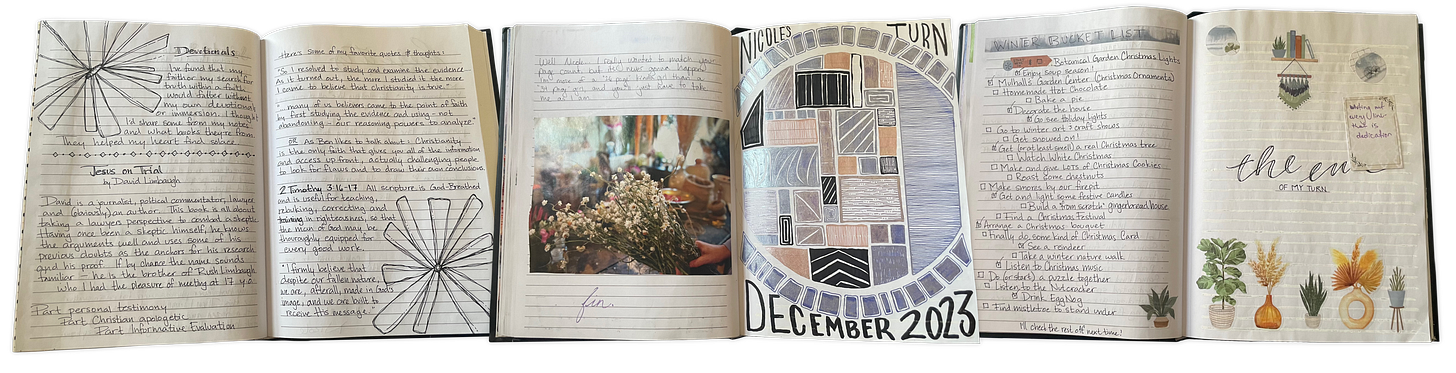 Devotionals
I've found that my
faith or my search for
truth within a faith
would falter without
my own devotional
or immersion. I thought
I'd share some from my notes
and what books they're from.
They helped my heart find solace.
Jesus on Trial
by David Limbaugh
David is a journalist, political commentator, lawyer,
and (obviously) an author. This book is all about
taking a lawyers perspective to combat a skeptic.
Having once been a skeptic himself, he knows
the arguments well and uses some of his
previous doubts as the anchors for his research
and his proof. If by chance the name sounds
familiar - he is the brother of Rush Limbaugh
who I had the pleasure of meeting at 17 y.o.
Part personal testimony
Part Christian apologetic
Part Informative Evaluation
Here's some of my favorite quotes & thoughts:
"So I resolved to study and examine the evidence
As it turned out, the more I studied it the more
I came to believe that Christianity is true."
"...many of us believers came to the point of faith
by first studying the evidence and using - not
abandoning - our reasoning powers to analyze"
OR As Ben likes to talk about: Christianity
is the only faith that gives you all of the information
and access up front, actually challenging people
to look for flaws and to draw their own conclusions.
2 Timothy 3:16-17 All scripture is God-Breathed
and is useful for teaching,
rebuking, correcting and
training in righteousness, so that
the man of God may be
thoroughly equipped for
every good work.
"I firmly believe that
despite our fallen nature,
we are, afterall, made in God's
image, and we are built to
receive His message.
Well Mick- I really wanted to match your
page count, but it's never gonna happen!
me as I am.
fin.
NICOLES TURN
DECEMBER 2023
WINTER BUCKET LIST
Botanical Garden Christmas Lights
Enjoy soup season!
Mulhall's Garden Center (Christmas Ornaments)
Homemade Hot Chocolate
Bake a pie
Decorate the house
Go see holiday lights
Go to winter art & craft shows
Get snowed on!
Get (or at least smell) a real Christmas tree
Watch White Christmas
Make and give Lots of Christmas Cookies
Roast some chestnuts
Make smores by our firepit
Get and light some festive candles
Build a "from scratch" gingerbread house
Find a Christmas Festival
Arrange a Christmas bouquet
Finally do some kind of Christmas Card
See a reindeer
Take a winter nature walk
Listen to Christmas music
Do (or start) a puzzle together
Listen to the Nutcracker
Drink EggNog
Find mistletoe to stand under
I'll check the rest off next time!
every line
that is
dedication
the end
OF MY TURN.